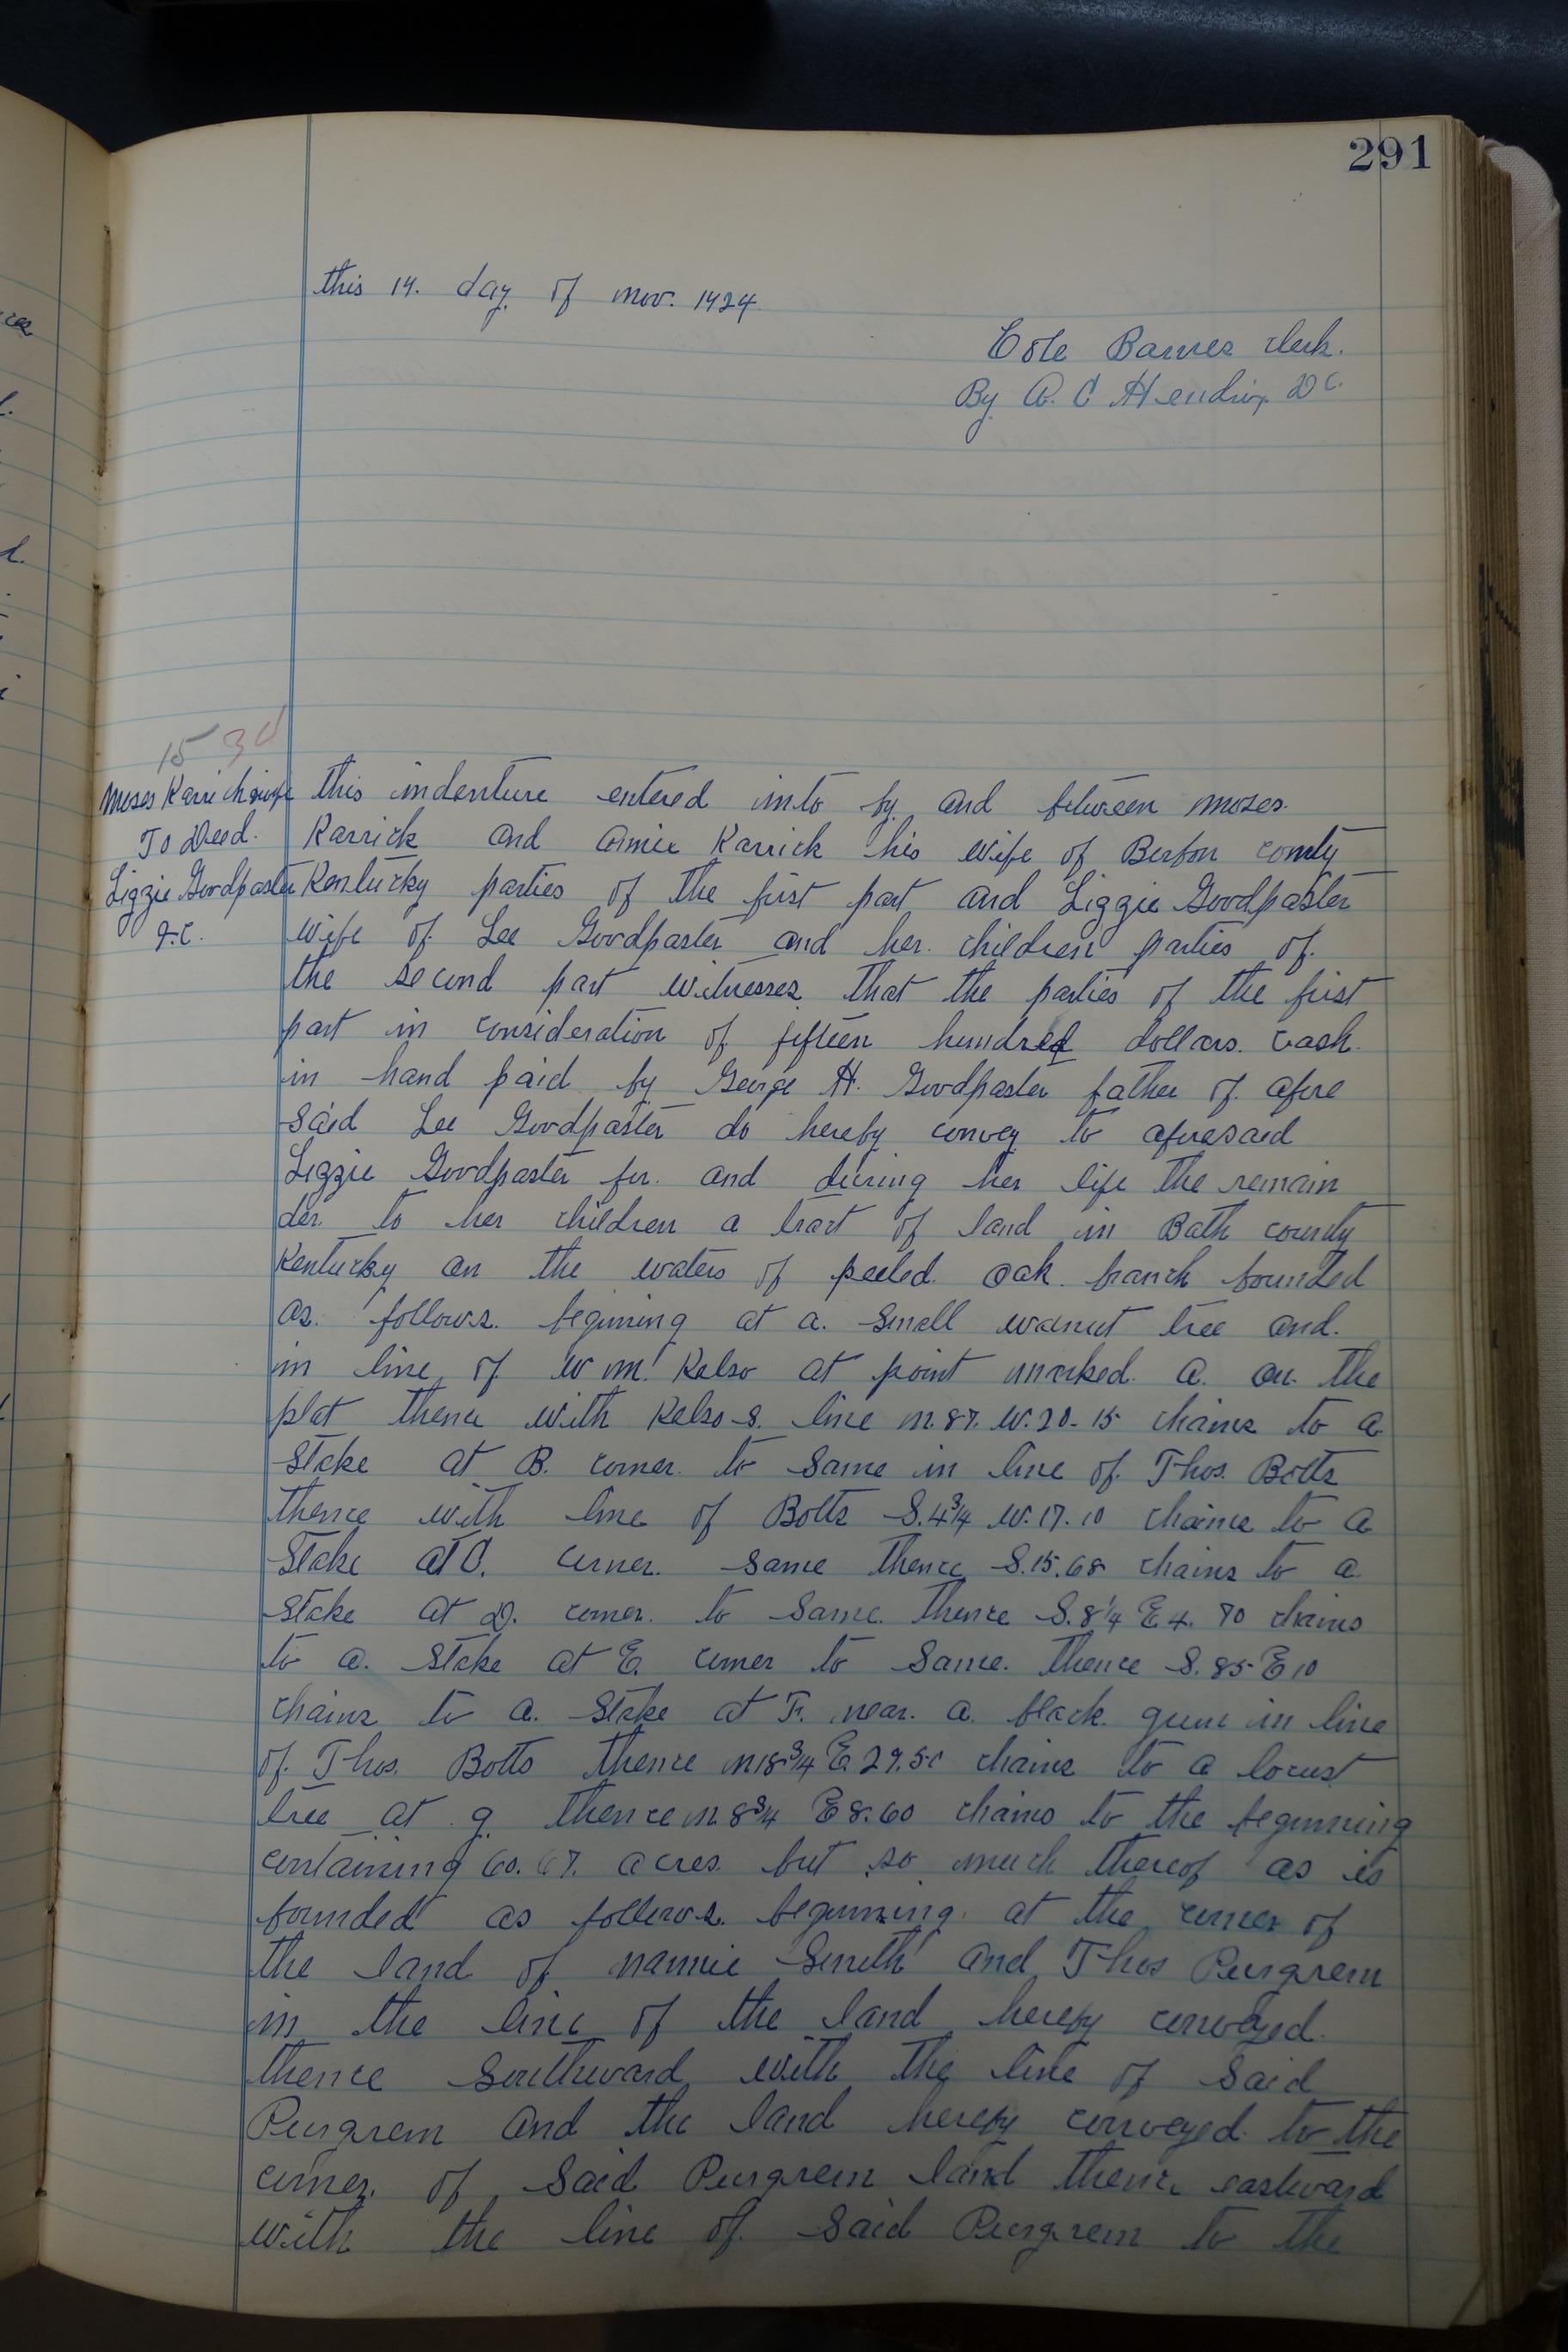 291
this 14. day of nov. 1924
Cole Barnes clerk.
By A. C Hendrix DC.
15 30
Moses Karrick & wife
To Deed.
Lizzie Goodpaster
&.C.
this indenture entered into by and between moses.
Karrick and Annie Karrick his wife of county
Kentucky parties of the first part and Lizzie Goodpaster
wife of Lee Goodpaster and her. children parties of.
the second part witnesses that the parties of the first
part in consideration of fifteen hundred dollars. cash.
in hand paid by George H. Goodpaster father of afore
said Lee Goodpaster do hereby convey to aforesaid
Lizzie Goodpaster for. and during her life the remain
der. to her children a tract of land in Bath county
Kentucky on the waters of peeled. oak. branch bounded
as. follows. begining at a. small walnut tree and.
in line of Wm. Kelso at point marked. a. on. the
plat thence with Kelso s. line n. 87. W. 20. 15 chains to a
stake at B. corner. to same in line of. Thos. Botts
thence with line of Botts S. 4 3/4 W. 17. 10 chains to a
Stake at C. corner. same thence S. 15. 68 chains to a.
stake at D. corner. to same. thence S. 8 1/4 E 4. 70 chains
to a. stake at E. corner to same. thence S. 85 E 10
chains to a. stake at F. near. a. black. gum in line
of. Thos. Botts thence n 18 3/4 E. 29. 50 chains to a locust
tree at g. thence n. 8 3/4 E 8. 60 chains to the beginning
containing 60. 67. acres. but so much thereof as is
bounded as follows. beginning. at the corner of
the land of nannie Smith and Thos Purgrem
in the line of the land hereby conveyed.
thence Southward with the line of Said
Purgrem and the land hereby conveyed. to the
corner. of Said Purgrem land thence eastward
with the line of. Said Purgrem to the